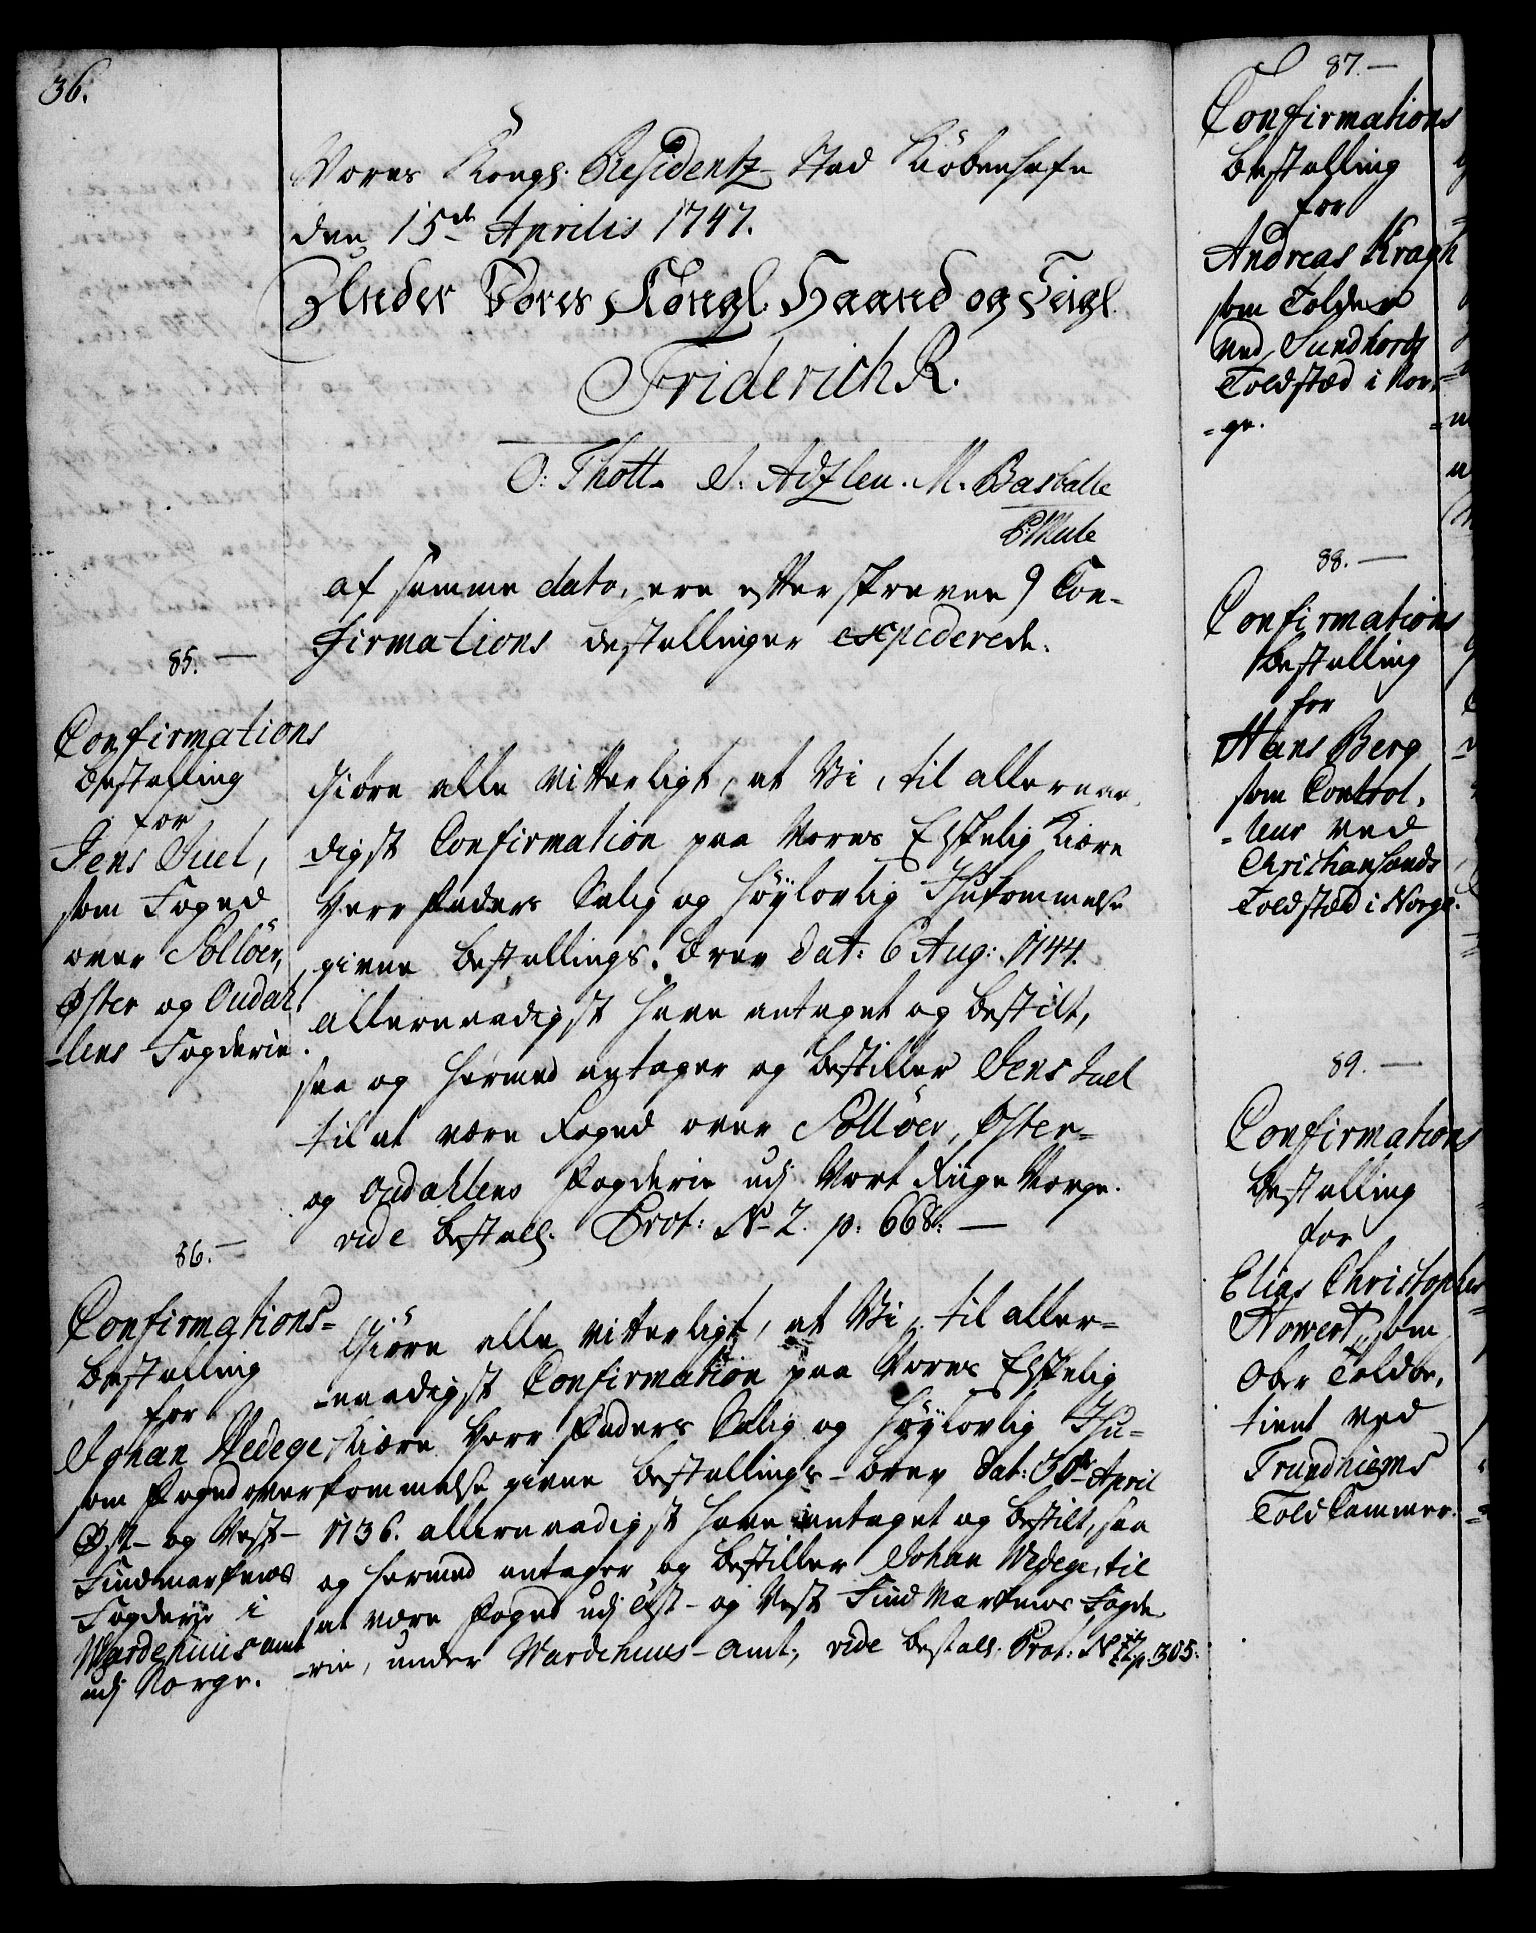 36.
Vores Kongl. Residentz Stad Kiöbenhafn
den 15de Aprilis 1747.
Under Vores Kongl. Haand og Seigl.
Friderich R.
O: Thott. J. Adzlen. M. Basballe
af samme dato, ere efterskrevne 9 Con-
firmations bestallinger expederede.
85.
Confirmations
bestalling
for
Jens Juel,
som Foged
over Sollöer,
Öster og Oudah
-lens Fogderie.
Giöre alle vitterligt, at Vi, til allernaa-
digst Confirmation paa Vores Elskelig Kiære
Herr Faders Salig og Höylovlig Ihukommelse
givne bestallings-brev dat: 6 Aug: 1744.
allernaadigst have antaget og bestilt,
saa og hermed antager og bestiller Jens Juel
til at være Foged over Sollöer, Öster-
og Oudahlens Fogderie udj Vort Riige Norge.
vide bestall. Prot: No 2. p. 668. —
86. —
Confirmations-
bestalling
for
Johan Wedege
som Foged over
Öst- og Vest-
Findmarkens
Fogderie i
Wardehuus amt
udj Norge.
Giöre alle vitterligt, at Vi, til aller-
-naadigst Confirmation paa Vores Elskelig
Kiære Herr Faders Salig og Höylovlig Ihu-
kommelse givne bestallings-brev dat: 30te April
1736. allernaadigst have antaget og bestilt, saa
og hermed antager og bestiller Johan Wedege, til
at være Foged udj Öst- og Vest Find Markens Fogde-
-rie, under Wardehuus-amt; vide bestall. Prot: No p. 305.
87. —
Confirmations
bestalling
for
Andreas Kragh
som Tolder
ved Sundhords
Toldsted i Nor-
-ge.
88. —
Confirmations
bestalling
for
Hans Berg
som Control-
-leur ved
Christiansands
Toldsted i Norge.
89. —
Confirmations
bestalling
for
Elias Christopher
Nowert, som
Ober Toldbe-
tient ved
Trundhiems
Told Cammer.